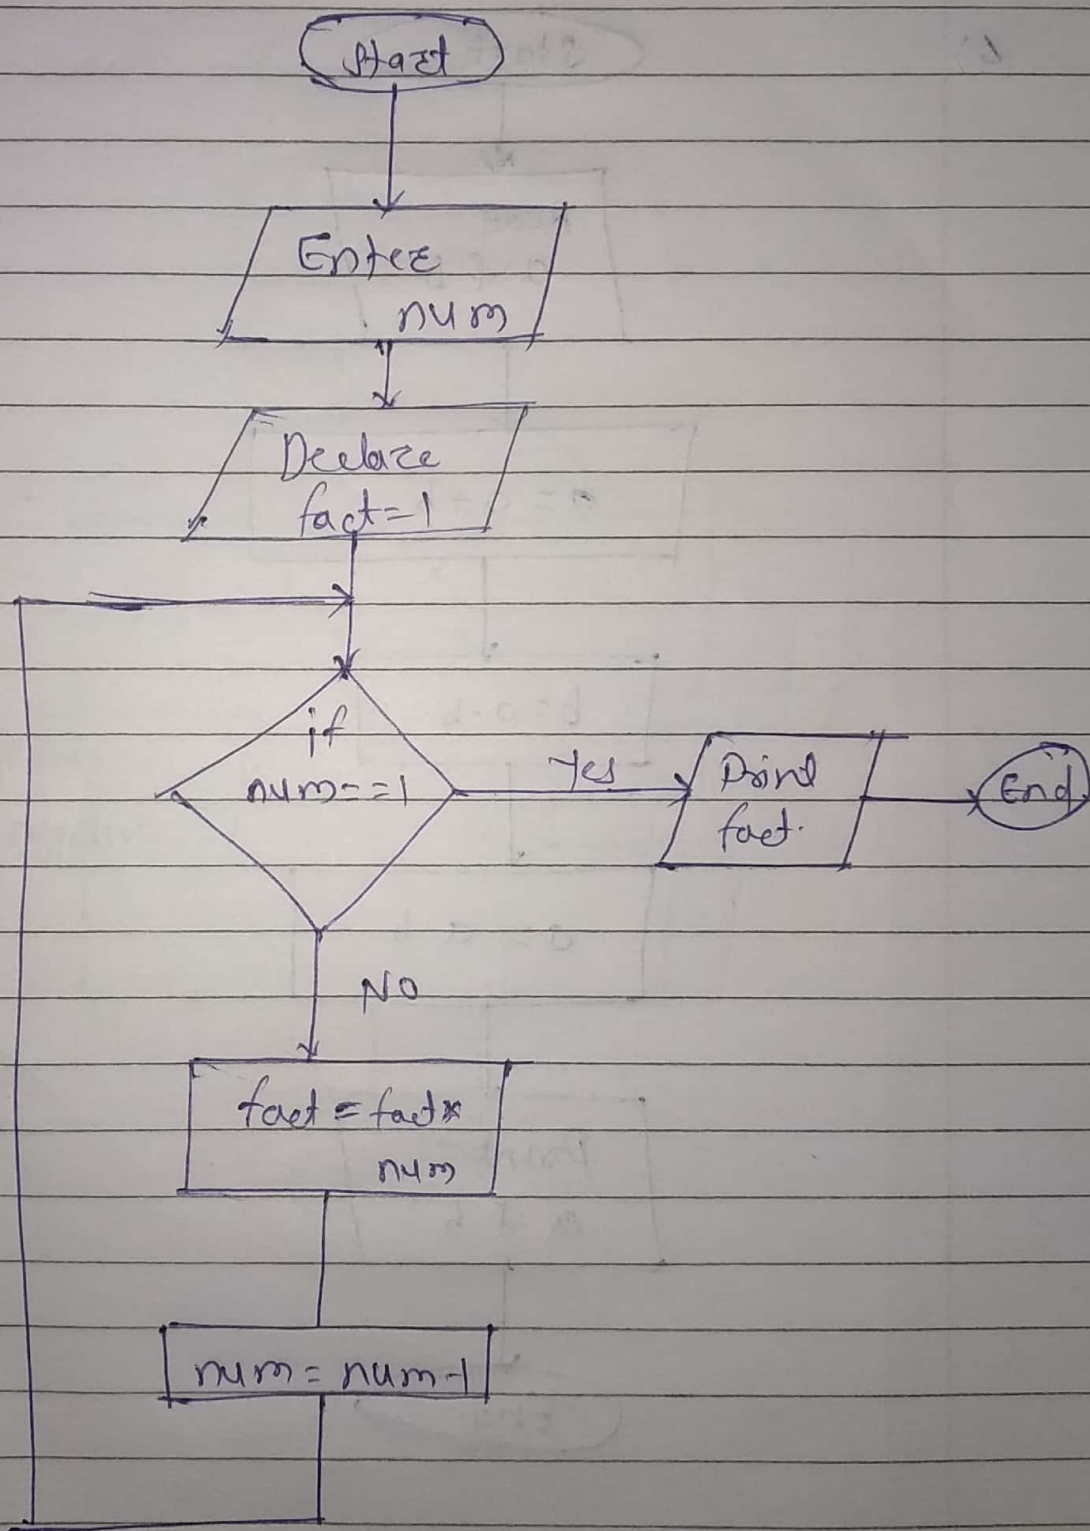 Start
Enter
num
Declare
fact=1
if
num==1
Yes
Print
fact.
End
NO
fact = fact*
num
num = num-1